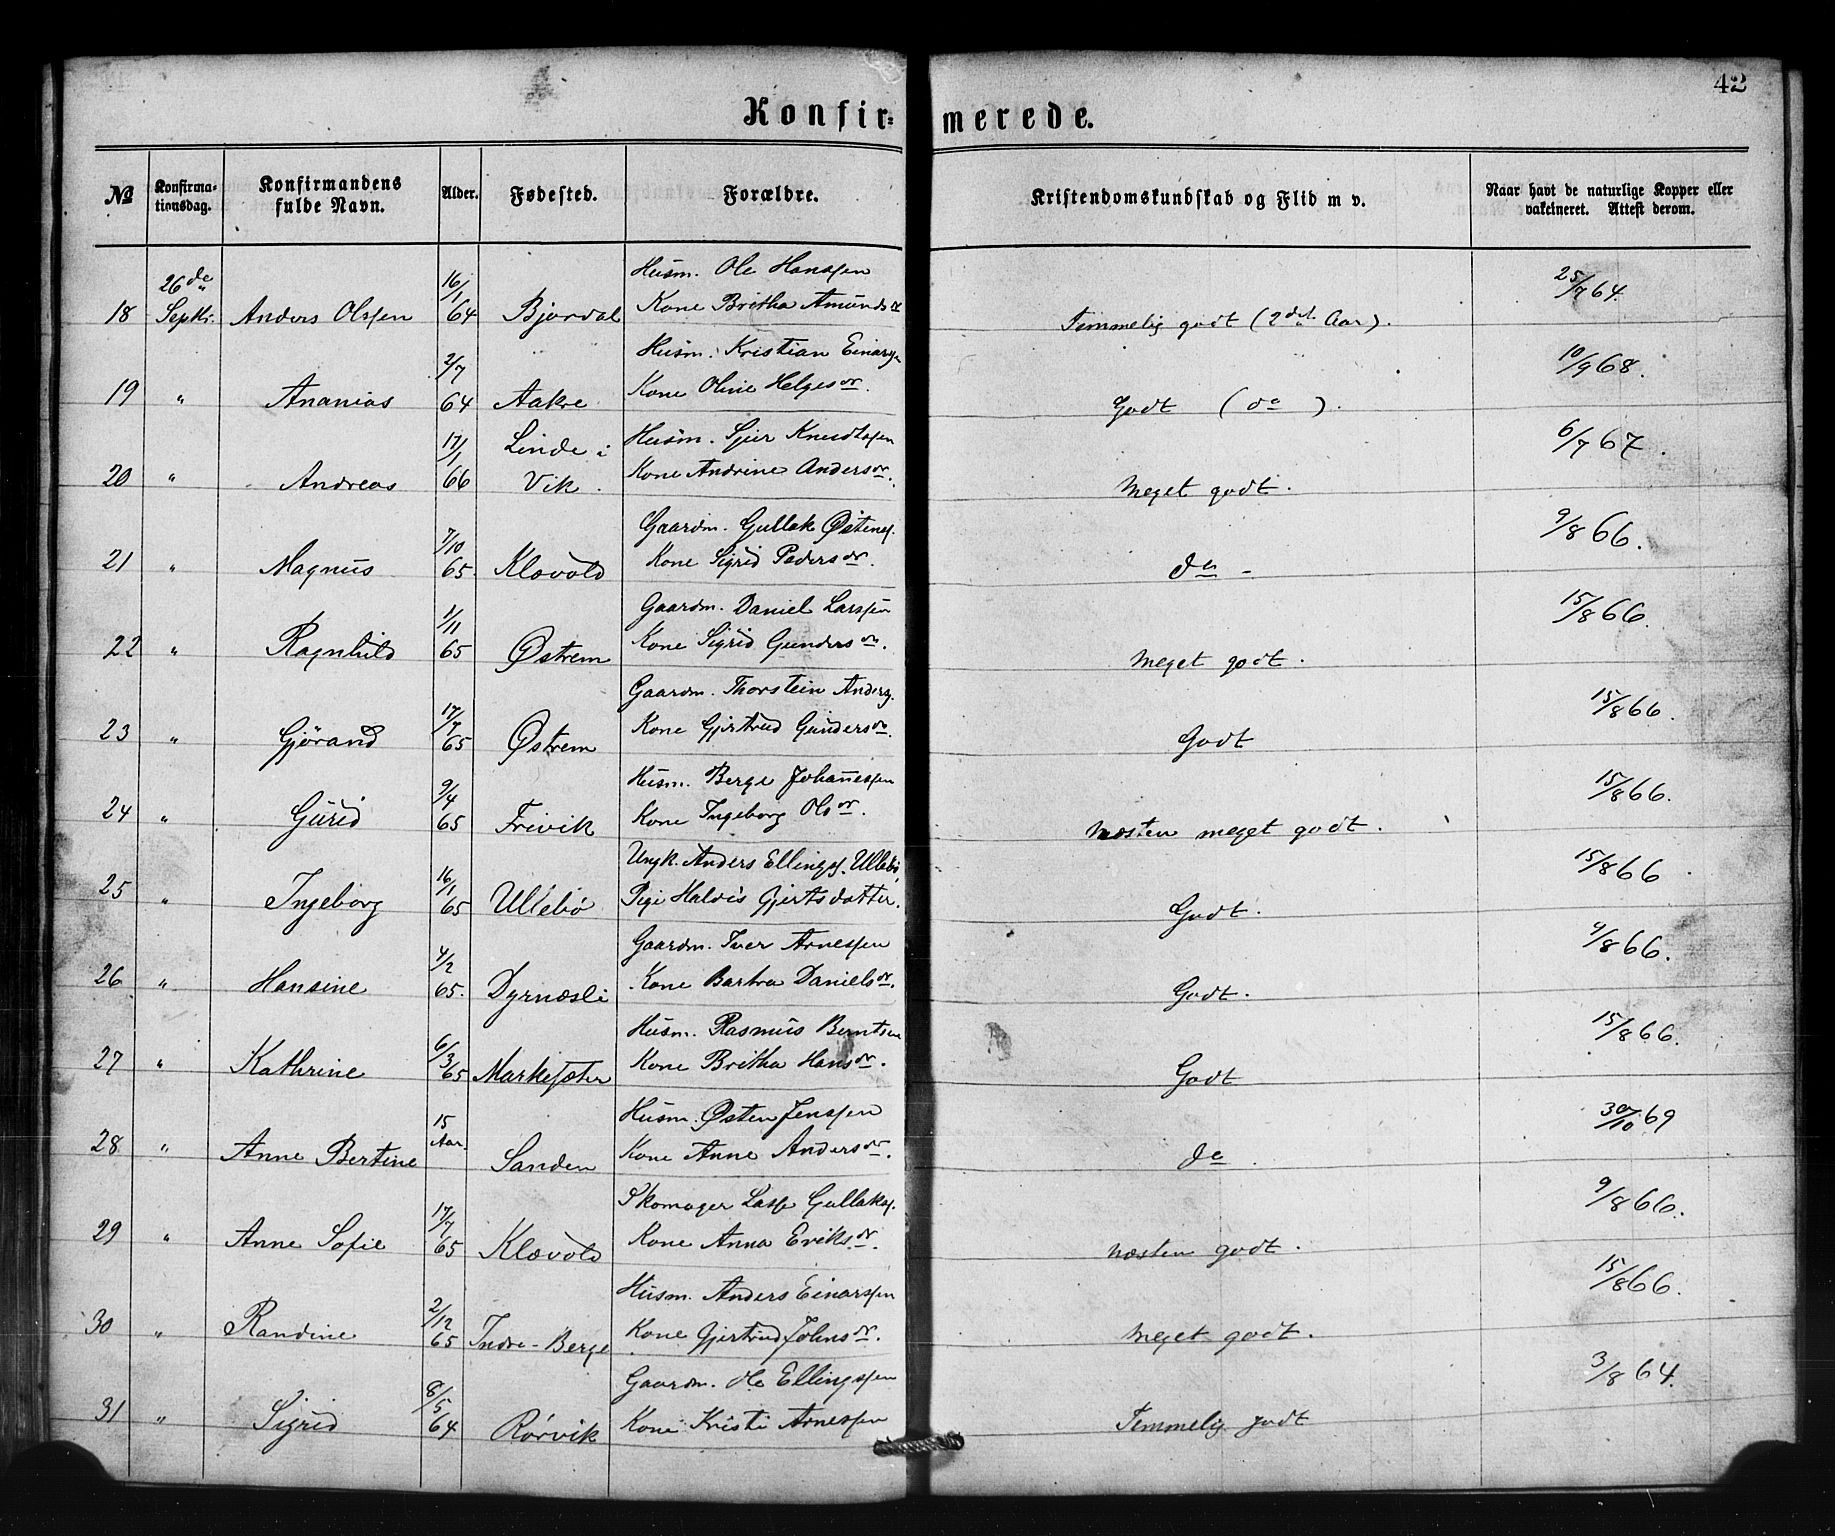 42
Konfir- merede.
No Konfirma-tionsdag. Konfirmandens fulde Navn. Alder. Fødested. Forældre. Kristendomskundskab og Flid m v. Naar havt de naturlige Kopper eller vakcineret. Attest derom.
26de 16/1 Husm. Ole Hanssen 25/7 64.
18 Septbr. Anders Olssen 64 Bjordal Kone Britha Amundsdr Temmelig godt (2det Aar).
2/7 Husm. Kristian Einarsen 10/9 68.
19 " Ananias 64 Aakre Kone Oline Helgesdr. Godt (do).
17/1 Linde i Husm. Sjur Knudtssen 6/7 67.
20 " Andreas 66 Vik. Kone Andrine Andersdr. Meget godt.
7/10 Gaardm. Gullak Østens. 9/8 66.
21 " Magnus 65. Klævold Kone Sigrid Pedersdr. do -
1/11 Gaardm. Daniel Larssen 15/8 66.
22 " Ragnhild 65 Østrem Kone Sigrid Gundersdr. Meget godt.
17/7 Gaardm. Thorstein Anders. 15/8 66.
23 " Gjørand 65 Østrem Kone Gjertrud Gundersdr. Godt
9/4 Husm. Berge Johannessen 15/8 66.
24 " Gurid 65 Frivik Kone Ingeborg Olsdr. Næsten meget godt.
16/1 Ungk. Anders Ellings. Ullebø, 15/8 66
25 " Ingeborg 65 Ullebø Pige Halvis Gjertsdatter. Godt.
4/2 Gaardm. Iver Arnessen 9/8 66.
26 " Hansine 65. Dyrnæsli Kone Barbra Danielsdr. Godt.
6/3 Husm. Rasmus Berntsen 15/8 66.
27 " Kathrine 65 Markesæter Kone Britha Hansdr. Godt
15 Husm. Østen Jenssen 30/10 69
28 " Anne Bertine Aar. Sanden Kone Anne Andersdr. do
17/7 Skomager Lasse Gullaks. 9/8 66.
29 " Anne Sofie 65 Klævold Kone Anna Eriksdr. Næsten godt.
2/12 Husm. Anders Einarssen 15/8 66.
30 " Randine 65 Indre-Berge Kone Gjertrud Johnsdr. Meget godt.
8/5 Gaardm. Ole Ellingssen 3/8 64.
31 " Sigrid 64 Rørvik Kone Kristi Arnessen Temmelig godt